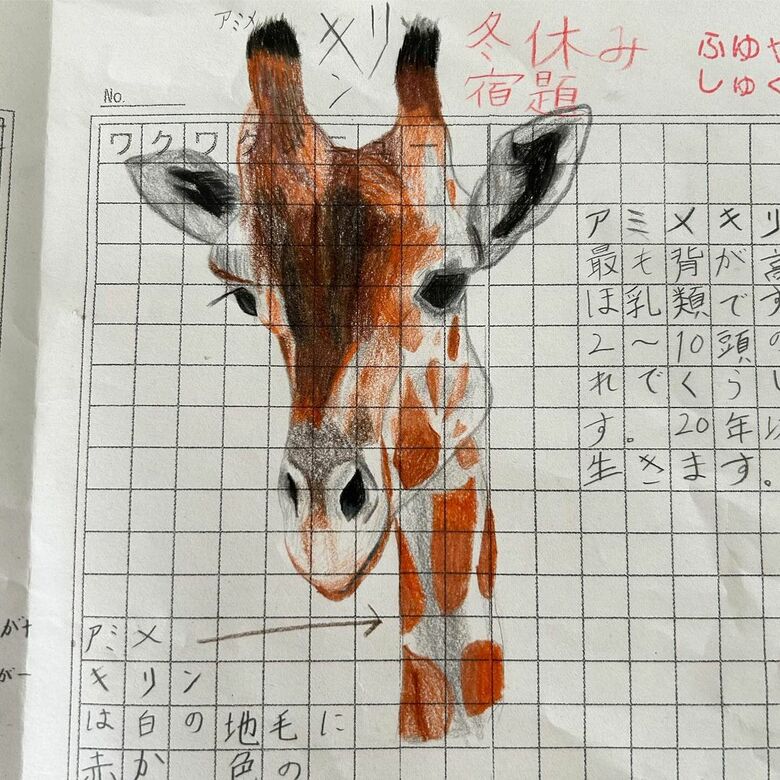 アミメ
キリン
冬休み
宿題
ふゆや
しゅく
No.
ワクワク
アミメキリ
最も背が高
ほ乳類です
2～10頭の
れでくらし
す。20年以
生きます。
アミメ
キリン
は白の地毛に
赤か色の